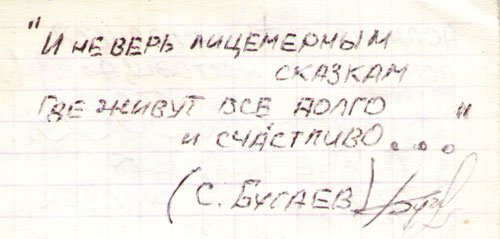 "И НЕ ВЕРЬ ЛИЦЕМЕРНЫМ
СКАЗКАМ
ГДЕ ЖИВУТ ВСЕ ДОЛГО
И СЧАСТЛИВО..."
(С. БУГАЕВ)